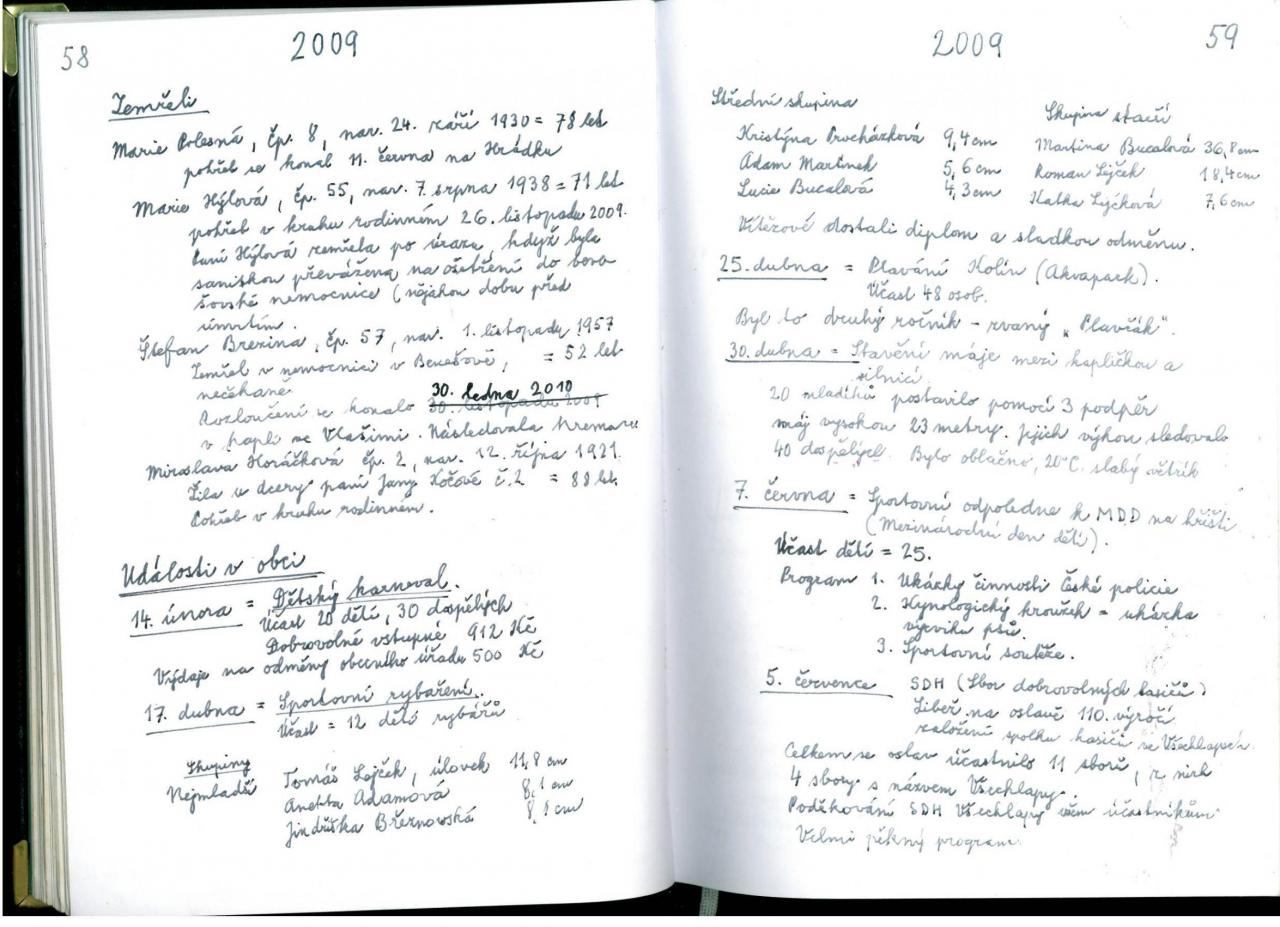 58
2009
Zemřeli
Marie Polesná, čp. 8, nar. 24. září 1930 = 78 let
pohřeb se konal 11. června na Hrádku
Marie Hýlová, čp. 55, nar. 7. srpna 1938 = 71 let
pohřeb v kruhu rodinném 26. listopadu 2009.
Paní Hýlová zemřela po úrazu, když byla
sanitkou převážena na ošetření do bene
šovské nemocnice (nějakou dobu před
úmrtím.
Štefan Brezina, čp. 57, nar. 1. listopadu 1957
Zemřel v nemocnici v Benešově, = 52 let
nečekaně.
30. ledna 2010
Rozloučení se konalo 30. listopadu 2009
v kapli ve Vlašimi. Následovala kremace
Miroslava Horáčková čp. 2, nar. 12. října 1921.
Žila u dcery paní Jany Kočové č. 2 = 88 let
Pohřeb v kruhu rodinném.
Události v obci
14. února = Dětský karneval.
Účast 20 dětí, 30 dospělých
Dobrovolné vstupné 912 Kč
Výdaje na odměny obecního úřadu 500 Kč
17. dubna = Sportovní rybaření.
Účast = 12 dětí rybářů
Skupiny
Nejmladší Tomáš Lejček, úlovek 11,8 cm
Anetta Adamová 8,1 cm
Jindřiška Březnovská 8,1 cm
2009
59
Střední skupina
Kristýna Procházková 9,4 cm
Adam Martinek 5,6 cm
Lucie Bucalová 4,3 cm
Skupina starší
Martina Bucalová 36,8 cm
Roman Lejček 18,4 cm
Katka Lejčková 7,6 cm
Vítězové dostali diplom a sladkou odměnu.
25. dubna = Plavání Kolín (Akvapark).
Účast 48 osob.
Byl to druhý ročník – zvaný "Plavčák".
30. dubna = Stavění máje mezi kapličkou a
silnicí.
20 mladíků postavilo pomocí 3 podpěr
máj vysokou 23 metry. Jejich výkon sledovalo
40 dospělých. Bylo oblačno, 20°C. slabý větřík
7. června = Sportovní odpoledne k MDD na hřišti
(Mezinárodní den dětí).
Účast dětí = 25.
Program 1. Ukázky činnosti České policie
2. Kynologický kroužek = ukázka
výcviku psů.
3. Sportovní soutěže.
5. července SDH (Sbor dobrovolných hasičů)
Libež na oslavě 110. výročí
založení spolku hasičů ve Všechlapech.
Celkem se oslav účastnilo 11 sborů, z nich
4 sbory s názvem Všechlapy.
Poděkování SDH Všechlapy všem účastníkům
Velmi pěkný program.